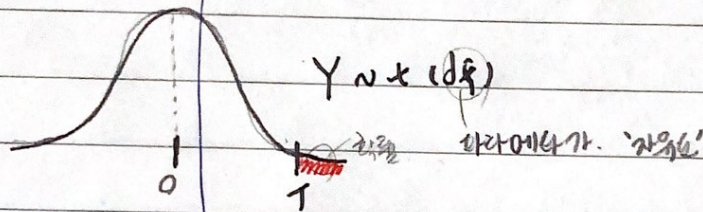 Y ~ t (df)
확률 파라미터가. '자유도'
0
T